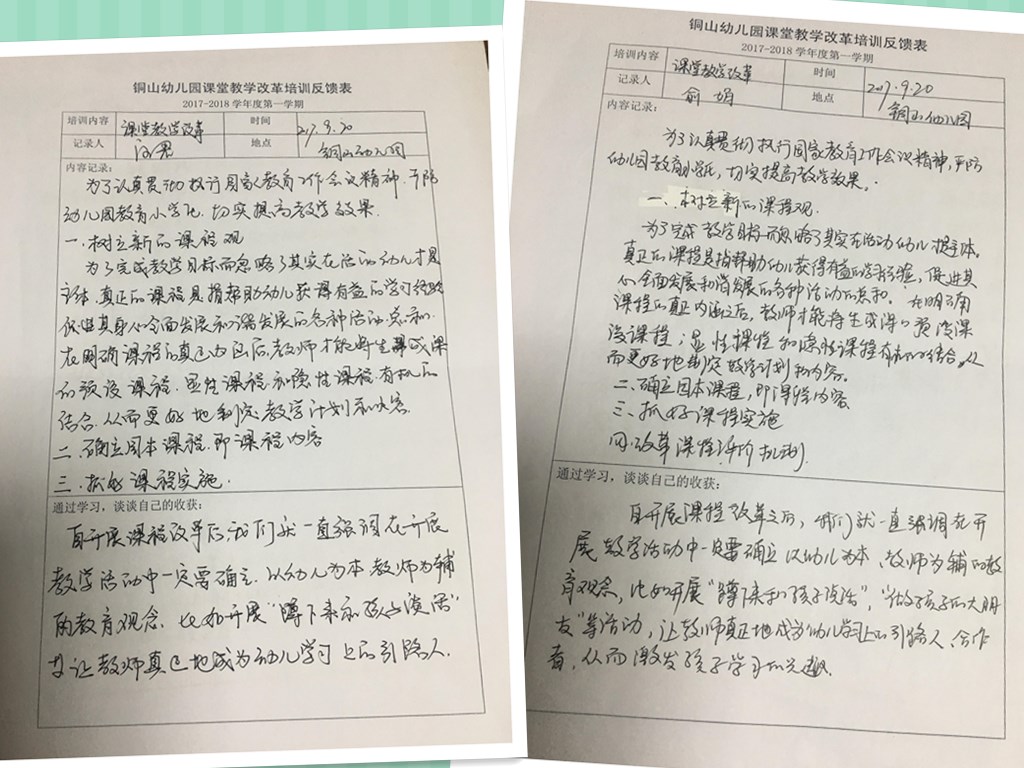 铜山幼儿园课堂教学改革培训反馈表
2017-2018 学年度第一学期
培训内容 课堂教学改革 时间 2017.9.20
记录人 地点 铜山幼儿园
内容记录:
为了认真贯彻执行国家教育工作会议精神,平防
幼儿园教育小学化.切实提高教学效果.
一.树立新的课程观
为了完成教学目标而忽略了其实在活动幼儿才是
主体.真正的课程是指帮助幼儿获得有益的学习经验
促进其身心全面发展和谐发展的各种活动总和.
在明确课程的真正内涵后,教师才能将生成课
的预设课程.显性课程和隐性课程有机的
结合.从而更好地制定教学计划和内容.
二.确立园本课程.即课程内容
三.抓好课程实施.
通过学习,谈谈自己的收获:
自开展课程改革后,我们就一直强调在开展
教学活动中一定要确立.以幼儿为本教师为辅
的教育观念.比如开展“蹲下来和孩子谈话”
让教师真正地成为幼儿学习上的引路人.
铜山幼儿园课堂教学改革培训反馈表
2017-2018 学年度第一学期
培训内容 课堂教学改革 时间 2017.9.20
记录人 俞娟 地点 铜山幼儿园
内容记录:
为了认真贯彻执行国家教育工作会议精神,平防
幼儿园教育小学化,切实提高教学效果.
一、树立新的课程观.
为了完成教学目标而忽略了其实在活动幼儿是主体.
真正的课程是指帮助幼儿获得有益的学习经验,促进其
心全面发展和谐发展的各种活动的总和.在明确
课程的真正内涵之后,教师才能将生成的预设课
设课程;显性课程和隐性课程有机的结合.从
而更好地制定教学计划和内容。
二.确立园本课程,即课程内容
三.抓好课程实施
四.改革课程评价机制.
通过学习,谈谈自己的收获:
自开展课程改革之后,我们就一直强调在开
展教学活动中一定要确立以幼儿为本、教师为辅的教
育观念,比如开展“蹲下来和孩子谈话”,“做孩子的大朋
友”等活动,让教师真正地成为幼儿学习上的引路人、合作
者,从而激发孩子学习的兴趣.